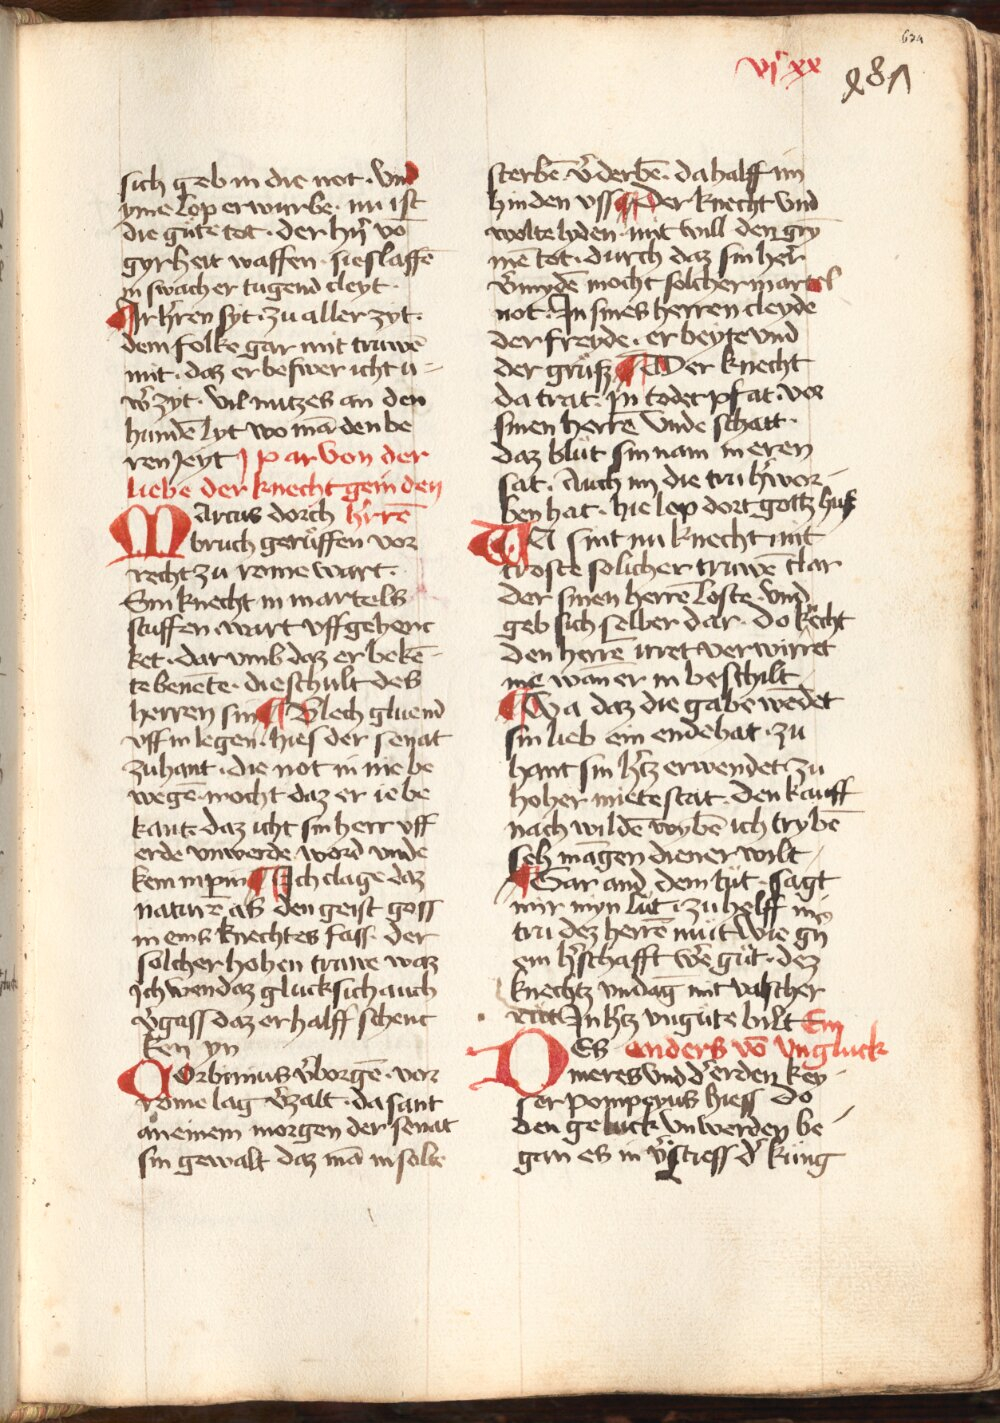 634
vj xx
281
sich geb in die not · Vnd
yme lop erwurbe · nu ist
die gůte tot · der hr̄n vō
gyrheit waffen · sie slaffē
jn swacher tugend cleyt ·
Ir h̄ren syt · zu aller zyt ·
dem folke gar mit truwē
mit · daz er beswer icht ü=
wr̄ zyt · vil nutzes an den
hundē lyt wo mā den be
ren jeyt I par von der
liebe der knecht gein den
Marcus dorch hr̄rē
bruch gerüffen vor
recht zu rome wart ·
Sin knecht in martels
stuffen wart vff gehenc
ket · dar vmb daz er bekē-
te benēte · die schult des
herren sin Blech gluend
vff in legen · hies der senat
zuhant · die not in nie be
wegē mocht daz er ie be
kant · daz icht sin herr vff
erde vnwerde word vnde
kem in pin Ich clage daz
naturē as den geist goss
in eins knechtes fass · der
solcher hohen truwe waz
Ich wen daz gluck sich auch
v̄gass daz er halff schenc
ken yn
Orbinius v̄borgē · vor
rome lag v̄zalt · da sant
an einem morgen der senat
sin gewalt daz mā in solte
sterbē · v̄derbē · da halff im
hinden vss Der knecht vnd
wolte lyden · mit will den grȳ
mē tot · durch daz sin her̄
v̄mydē mocht solcher martel
not · In sines herren cleyde
der freyde · er beyte vnd
der grüsz Der knecht
da trat · jn todes pfat · vor
sinen herrē vnde schatt ·
daz blüt sin nam in eren
sat · Auch im die trü h̄ wor-
ben hat · hie lop dort gottz hus
Wa sint nu knecht mit
troste solicher truwē clar
der sinen herrē loste · vnd
geb sich selber dar · do knecht
den herrē irret verwirret
me wan er in beschilt
Wa daz die gabe wēdet
sin lieb ein ende hat · zu
hant sin h̄tz erwendet zu
hoher miete stat · den kauff
nach wildē wybē ich trybē
seh māgen diener wilt
Gar and dem tüt · sagt
mir myn lüt · zu helff mis
tru dez herrē müt wie gn̄
ein h̄schafft wē gůt · dez
knechtz vndāg mit valscher
In h̄tz vngüte bilt Ein
Des anders vō vngluck
meres vnd d̄ erden key-
ser pompeyus hiess do
den geluck vnwerden be-
gan es in v̄stiess d̄ küng